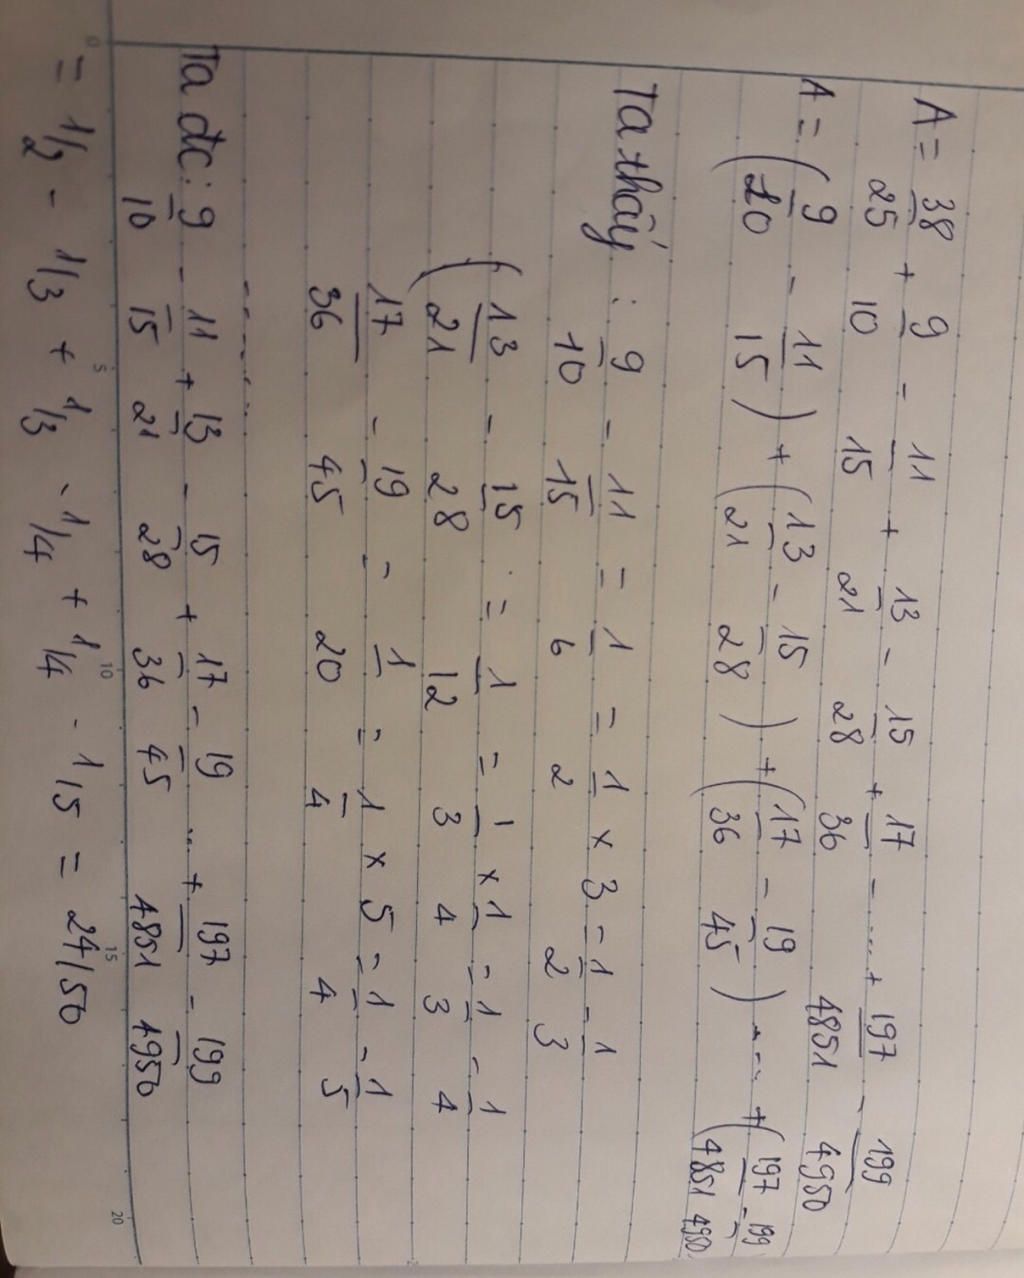 A = 38/25 + 9/10 - 11/15 + 13/21 - 15/28 + 17/36 - .... + 197/4851 - 199/4950
A = (9/10 - 11/15) + (13/21 - 15/28) + (17/36 - 19/45) ---- + (197/4851 - 199/4950)
Ta thấy : 9/10 - 11/15 = 1/6 = 1/2 x 3 = 1/2 - 1/3
(13/21 - 15/28 = 1/12 = 1/3 x 1/4 = 1/3 - 1/4
17/36 - 19/45 - 1/20 = 1/4 x 5 = 1/4 - 1/5
-------
Ta đc : 9/10 - 11/15 + 13/21 - 15/28 + 17/36 - 19/45 ... + 197/4851 - 199/4950
= 1/2 - 1/3 + 1/3 - 1/4 + 1/4 - 1/5 = 24/50
0 5 10 15 20